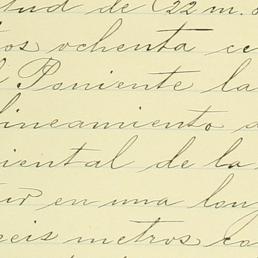 tud de (22 m. 8
tos ochenta ce
l Poniente la
lineamiento d
iental de la
tir en una lon
seis metros co